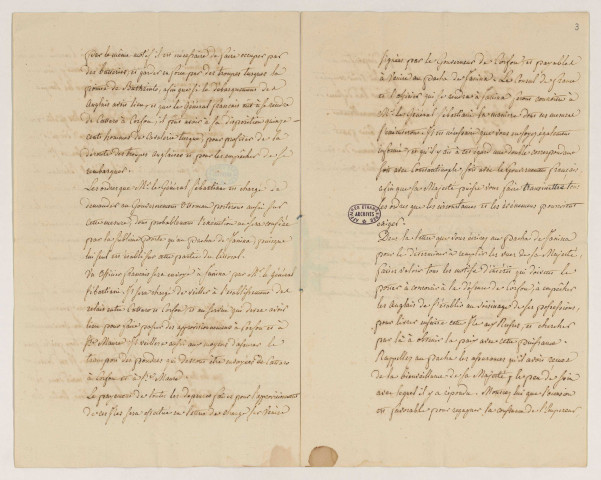 Par le même motif il est nécessaire de faire occuper par
des batteries, et garder en force par des troupes turques la
pointe de Butrinto, afin que si le débarquement des
Anglais avoit lieu et que le Général français eut à se rendre
de Cattaro à Corfou, il put avoir à sa disposition quinze
cents hommes de Cavalerie turque, pour profiter de la
déroute des troupes anglaises et pour les empêcher de se
rembarquer.
Les ordres que Mr. le Général Sébastiani est chargé de
demander au Gouvernement Ottoman porteront aussi sur
cette mesure, dont probablement l'exécution sera confiée
par la Sublime Porte qu'au Pacha de Janina, puisque
lui seul en veille sur cette partie du littoral.
Un Officier français sera envoyé à Janina par Mr. le Général
Sébastiani. Il sera chargé de veiller à l'établissement des
relais entre Cattaro et Corfou; et au besoin qui devra avoir
lieu pour faire passer des approvisionnements à Corfou et à
Ste. Maure. Il veillera aussi aux moyens d'assurer le
transport des poudres qui devront être envoyées de Cattaro
à Corfou et à Ste. Maure.
Le payement de toutes les dépenses faites pour l'approvisionnement
de ces Isles sera effectué en lettres de change sur Venise
3
signées par le Gouverneur de Corfou et payables
à Venise au Pacha de Janina. Le Consul de France
et l'officier qui se rendra à Janina feront connaître à
Mr. le Général Sébastiani la manière dont ces mesures
s'exécuteront. Il est nécessaire que vous en soyez également
informé et qu'il y ait à cet égard une double correspondance
soit avec Constantinople soit avec le Gouvernement français
afin que Sa Majesté puisse vous faire transmettre tous
les ordres que les circonstances et les événements pourroient
exiger.
ARCHIVES
Dans la lettre que vous écrirez au Pacha de Janina
pour le déterminer à remplir les vues de Sa Majesté,
faites valoir tous les motifs d'intérêt qui doivent le
porter à concourir à la défense de Corfou, à empêcher
les Anglais de s'établir au voisinage de ses possessions,
pour livrer ensuite cette Isle aux Russes, et chercher
par là à obtenir la paix avec cette puissance.
Rappellez au Pacha les assurances qu'il avoit reçues
de la bienveillance de Sa Majesté, le peu de soin
avec lequel il y a répondu. Montrez lui que l'occasion
est favorable pour regagner la confiance de l'Empereur